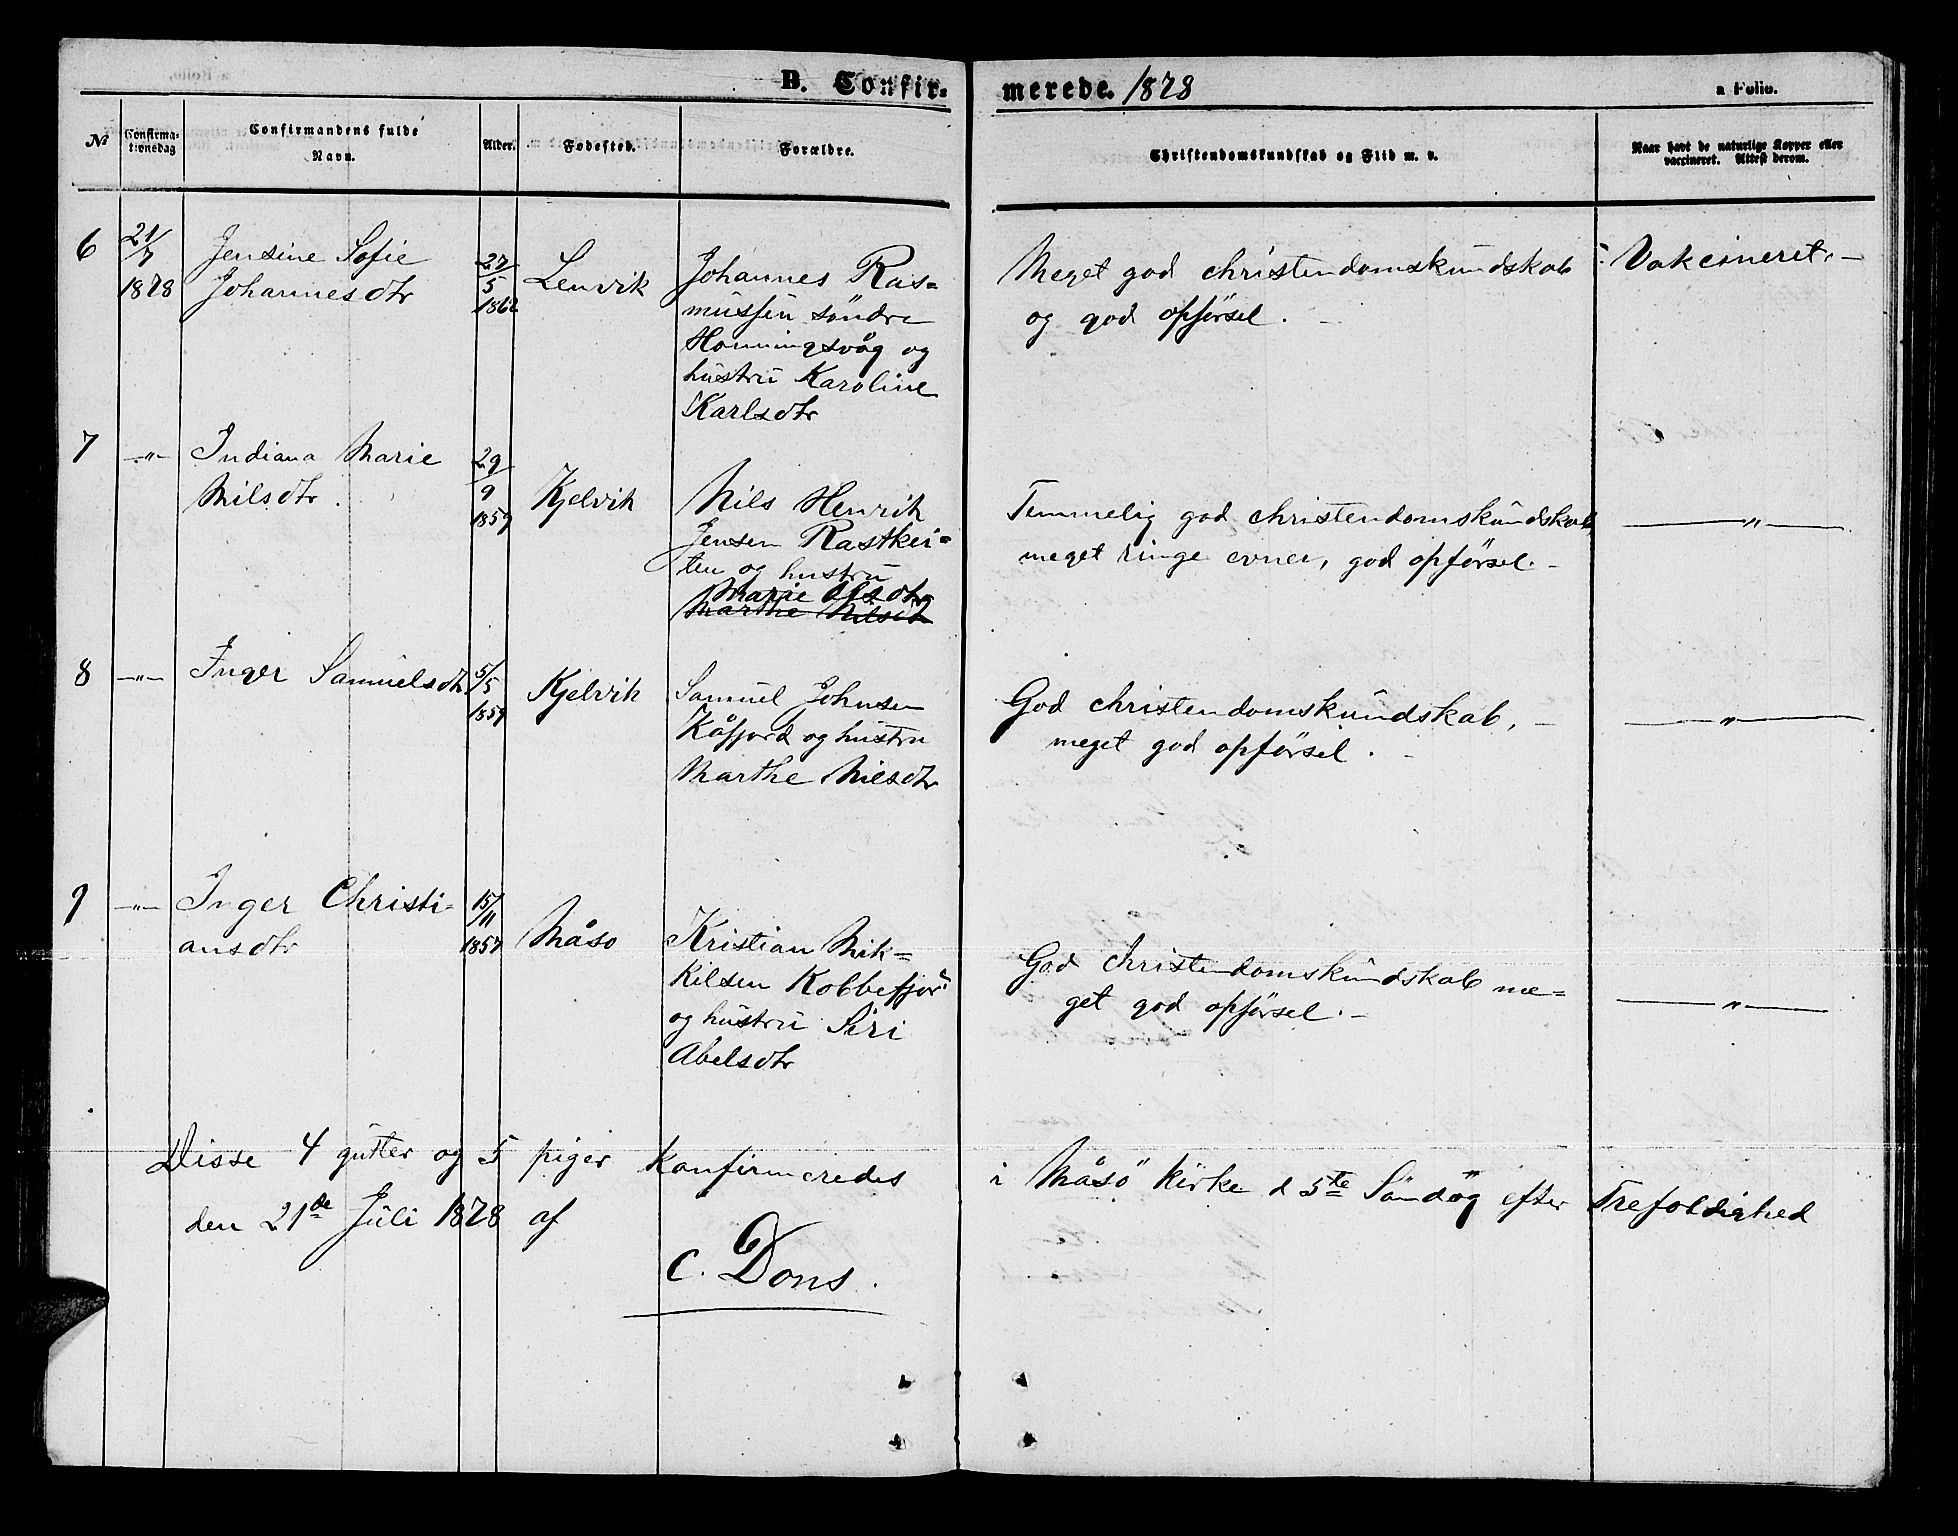 B. Confir- merede. 1878 a Folio.
№
Confirma-
tionsdag
Confirmandens fulde
Navn.
Alder.
Fødested.
Forældre.
Christendomskundskab og Flid m. v.
Naar havt de naturlige Kopper eller
vaccineret. Attest derom.
6
21/7
1878
Jensine Sofie
Johannesdtr
27/5
1862
Lenvik
Johannes Ras-
mussen söndre
Honningsvåg og
hustru Karoline
Karlsdtr
Meget god christendomskundskab
og god opförsel. -
Vakcineret. -
7
-"-
Indiana Marie
Nilsdtr.
29/9
1859
Kjelvik
Nils Henrik
Jensen Rastkei-
ten og hustru
Marie Olsdtr
Marthe Nilsdt
Temmelig god christendomskundskab
meget ringe evner, god opförsel. -
-"-
8
-"-
Inger Samuelsdtr
5/5
1859
Kjelvik
Samuel Johnsen
Kåfjord og hustru
Marthe Nilsdtr
God christendomskundskab, -
meget god opförsel. -
-"-
9
-"-
Inger Christi-
ansdtr
15/11
1857
Måsö
Kristian Mik-
kelsen Kobbefjord
og hustru Siri
Abelsdtr
God christendomskundskab me-
get god opförsel. -
-"-
Disse 4 gutter og 5 piger konfirmeredes i Måsö kirke d 5te Söndag efter Trefoldighed
den 21de Juli 1878 af
C. Dons.